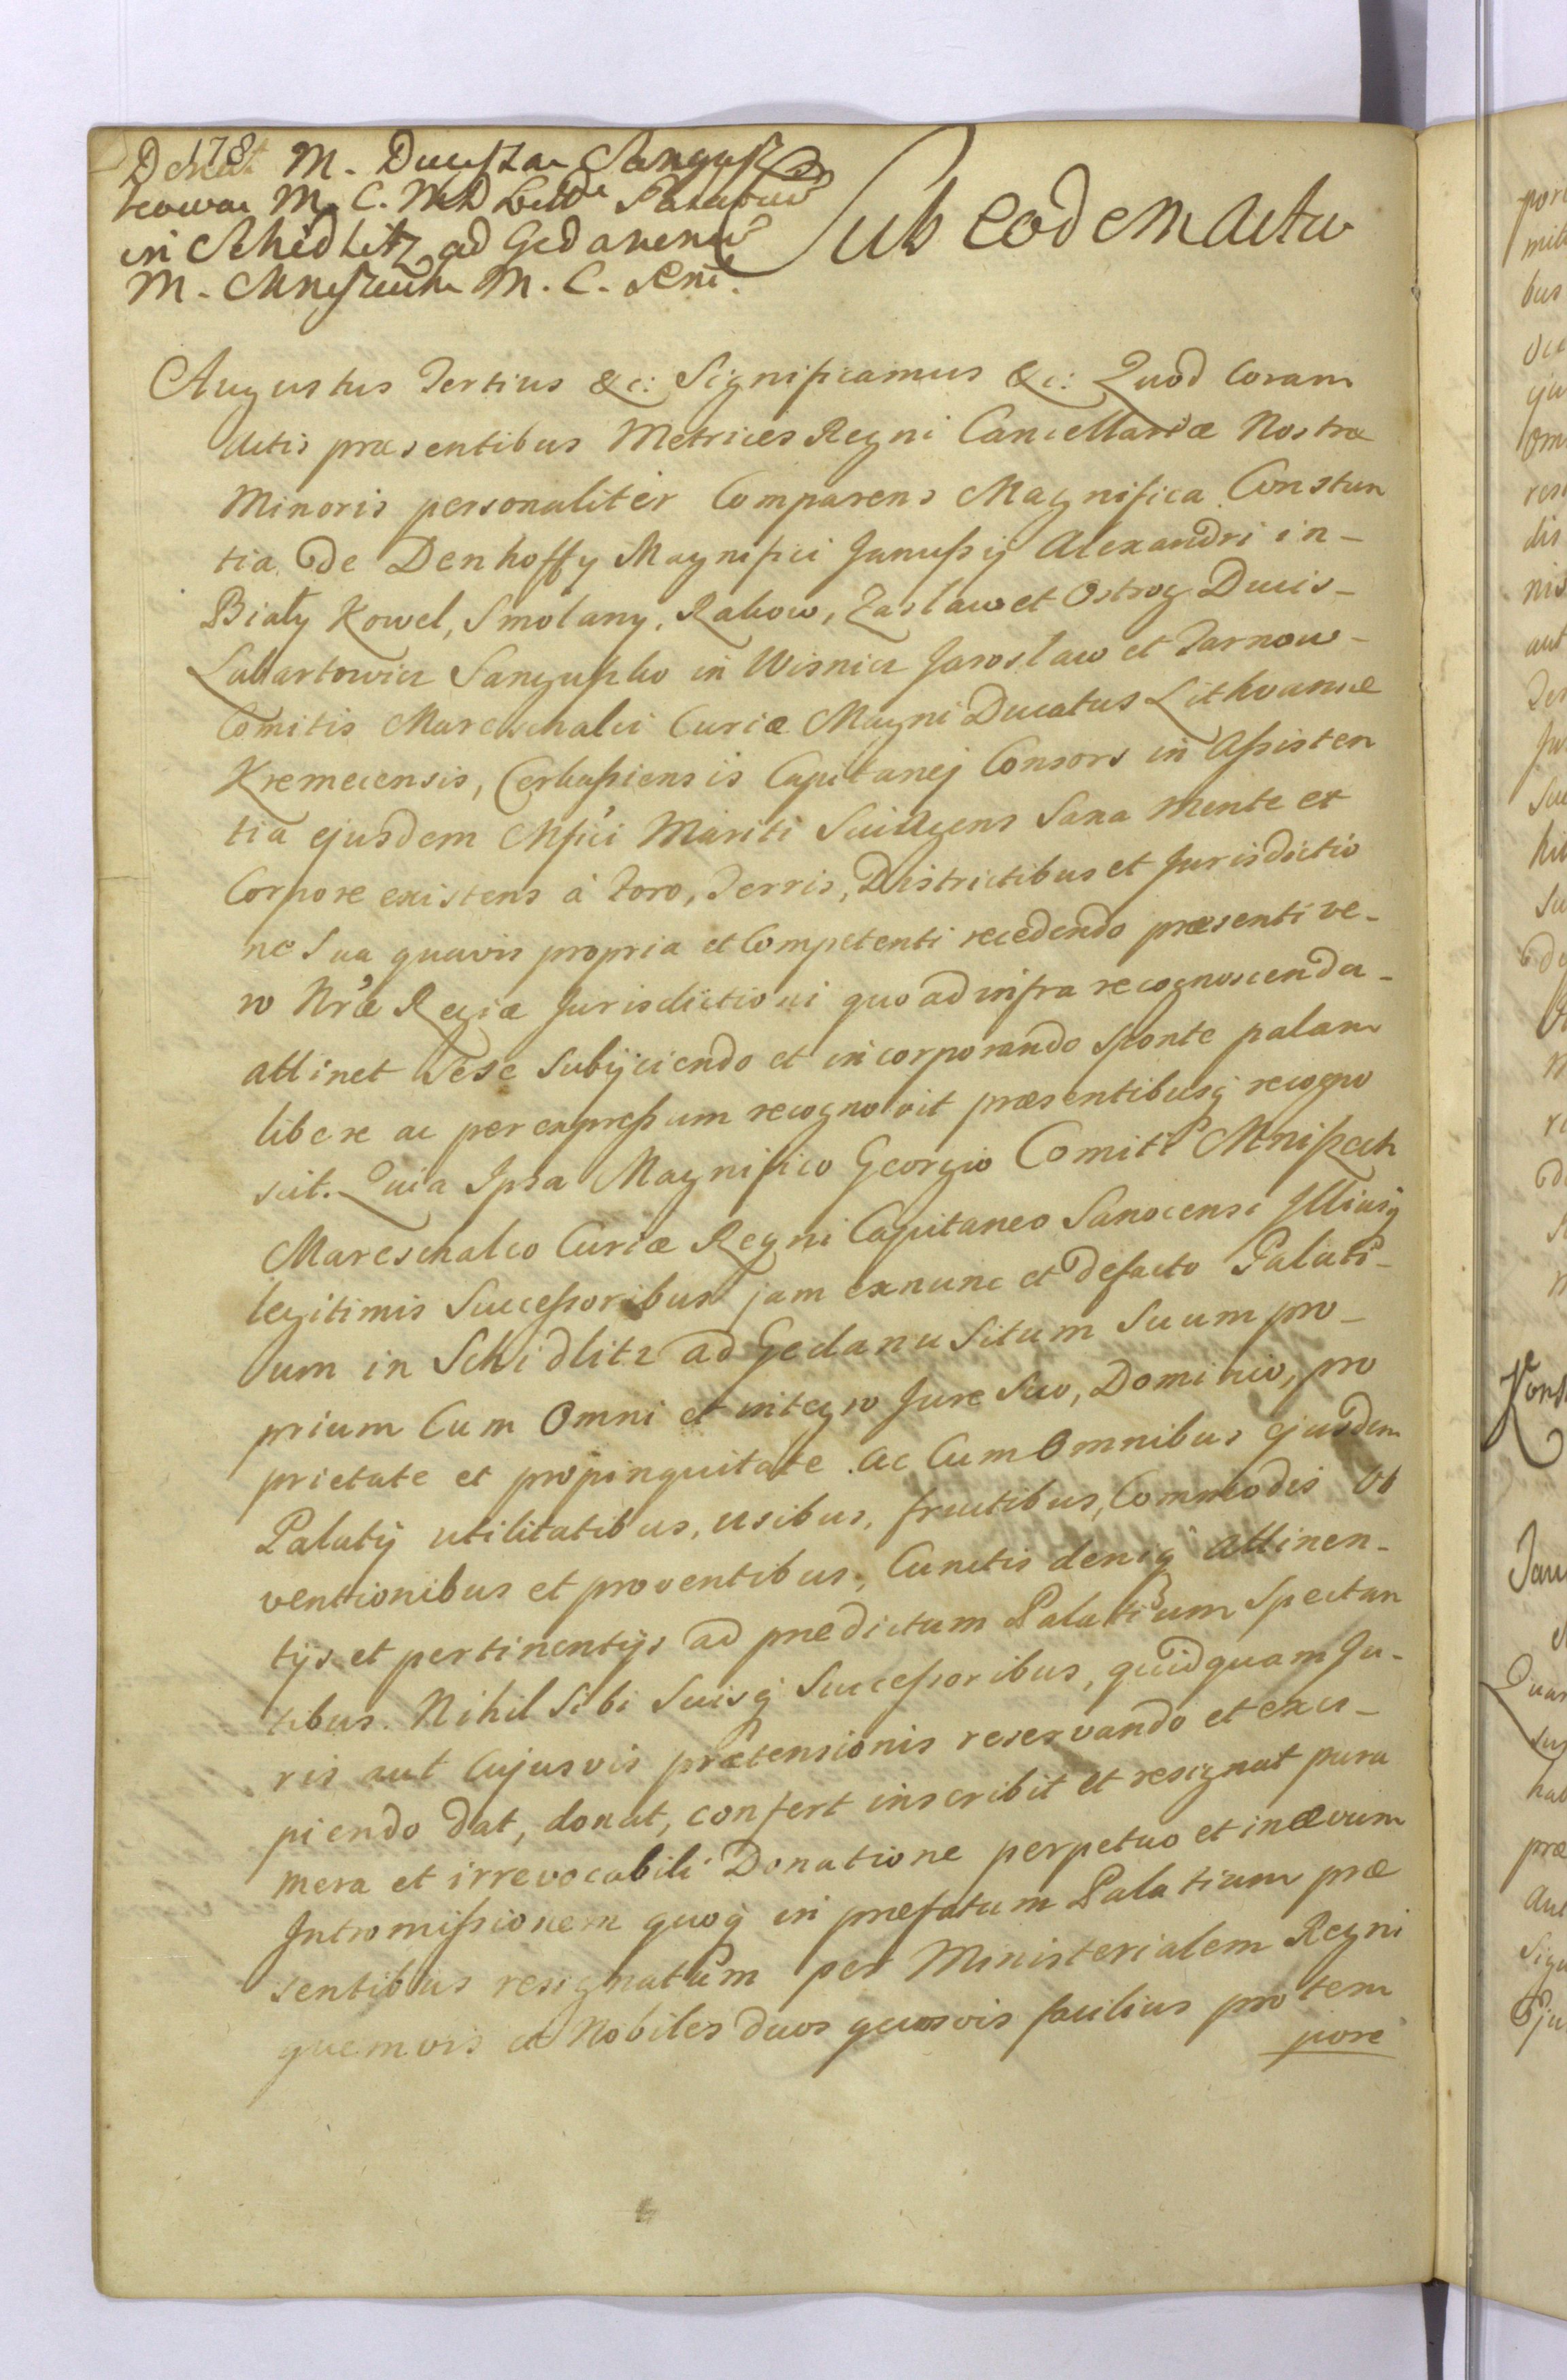 178
Donat M. Duciszae Sangusz
kowa M. C. M D Littae Palatiu
in Schidlitz ad Gedanenu
M. Mniszech M. C. Reni.
Sub eodem actu
Augustus Tertius &c: Significamus &c: Quod Coram
Actis præsentibus Metrices Regni Cancellariæ Nostræ
Minoris personaliter Comparens Magnifica Constan
tia de Denhoffy Magnifici Janussij Alexandri in-
Biały Kowel, Smolany, Rakow, Zaslaw et Ostrog Ducis-
Lubartowicz Sanguszko in Wisnicz Jaroslaw et Tarnow-
Comitis Mareschalci Curiæ Magni Ducatus Lithvaniæ
Kremecensis, Cerkassiensis Capitanej Consors in Assisten
tia ejusdem Mfici Mariti Sui Agens Sana Mente et
Corpore existens à Foro, Terris, Districtibus et Jurisdictio
ne Sua quavis propria et Competenti recedendo præsenti ve-
ro Nræ Regiæ Jurisdictioni quo ad infra recognoscenda-
attinet Sese Subijciendo et incorporando Sponte palam
libere ac per expressum recognovit præsentibusq recogno
scit. Quia Ipsa Magnifico Georgio Comiti Mniszech
Mareschalco Curiæ Regni Capitaneo Sanocensi Illiusq
legitimis Successoribus jam exnunc et defacto Palati-
um in Schidlitz ad Gedanu Situm Suum pro-
prium Cum Omni et integro Jure Suo, Dominio, pro
prietate et propinquitate. ac Cum Omnibus ejusdem
Palatij utilitatibus, usibus, fructibus, Commodis Ob
ventionibus et proventibus, Cunctis deniq attinen-
tijs et pertinentijs ad prædictum Palatium Spectan
tibus. Nihil Sibi Suisq Successoribus, quidquam Ju-
ris aut Cujusvis prætensionis reservando et exci-
piendo dat, donat, confert inscribit et resignat pura
mera et irrevocabili Donatione perpetuo et in ævum
Intromissionem quoq in præfatum Palatium præ
sentibus resignatum per Ministerialem Regni
quemvis et Nobiles duos quosvis facilius pro tem
pore